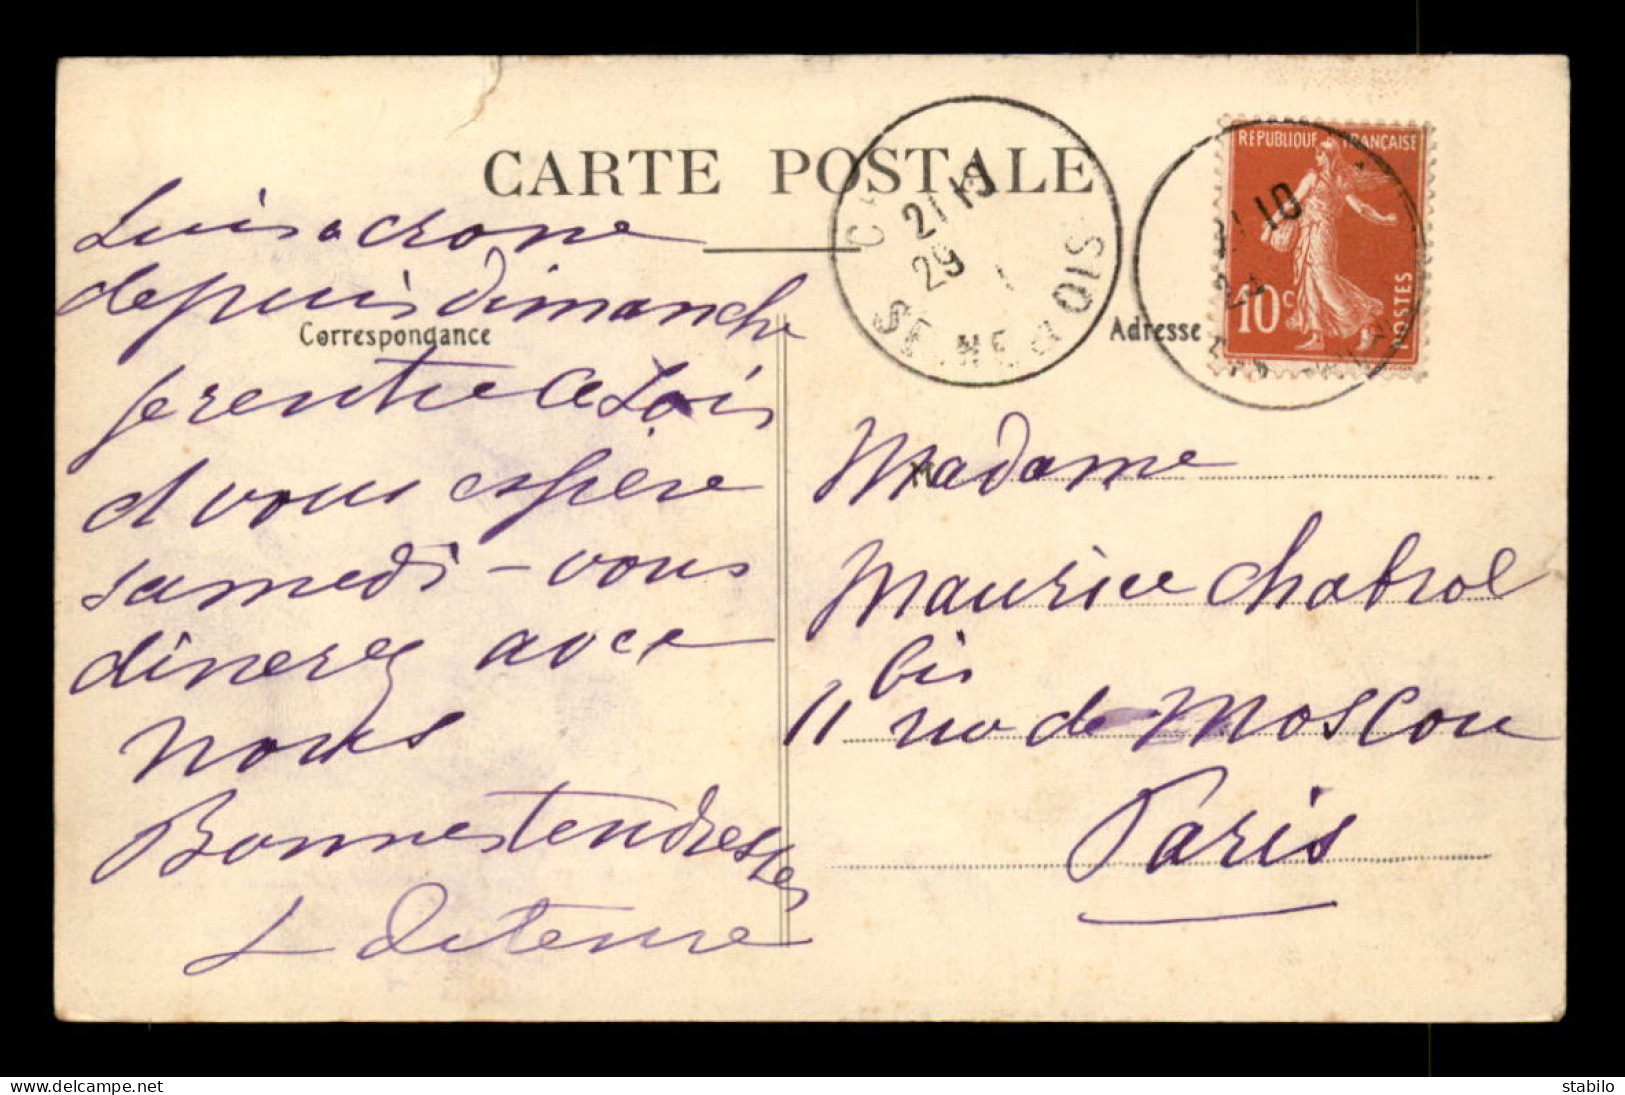 CARTE POSTALE
Correspondance
Suis a crone
depuis dimanche
je rentre ce soir
et vous espère
samedi - vous
dinerez avec
nous
Bonnes tendresses
L
Adresse
Madame
Maurice Chabrol
bis
11 rue de Moscou
Paris
REPUBLIQUE FRANÇAISE
10c
POSTES
21 10
29
SEINE ET OISE
21 10
M
stabilo